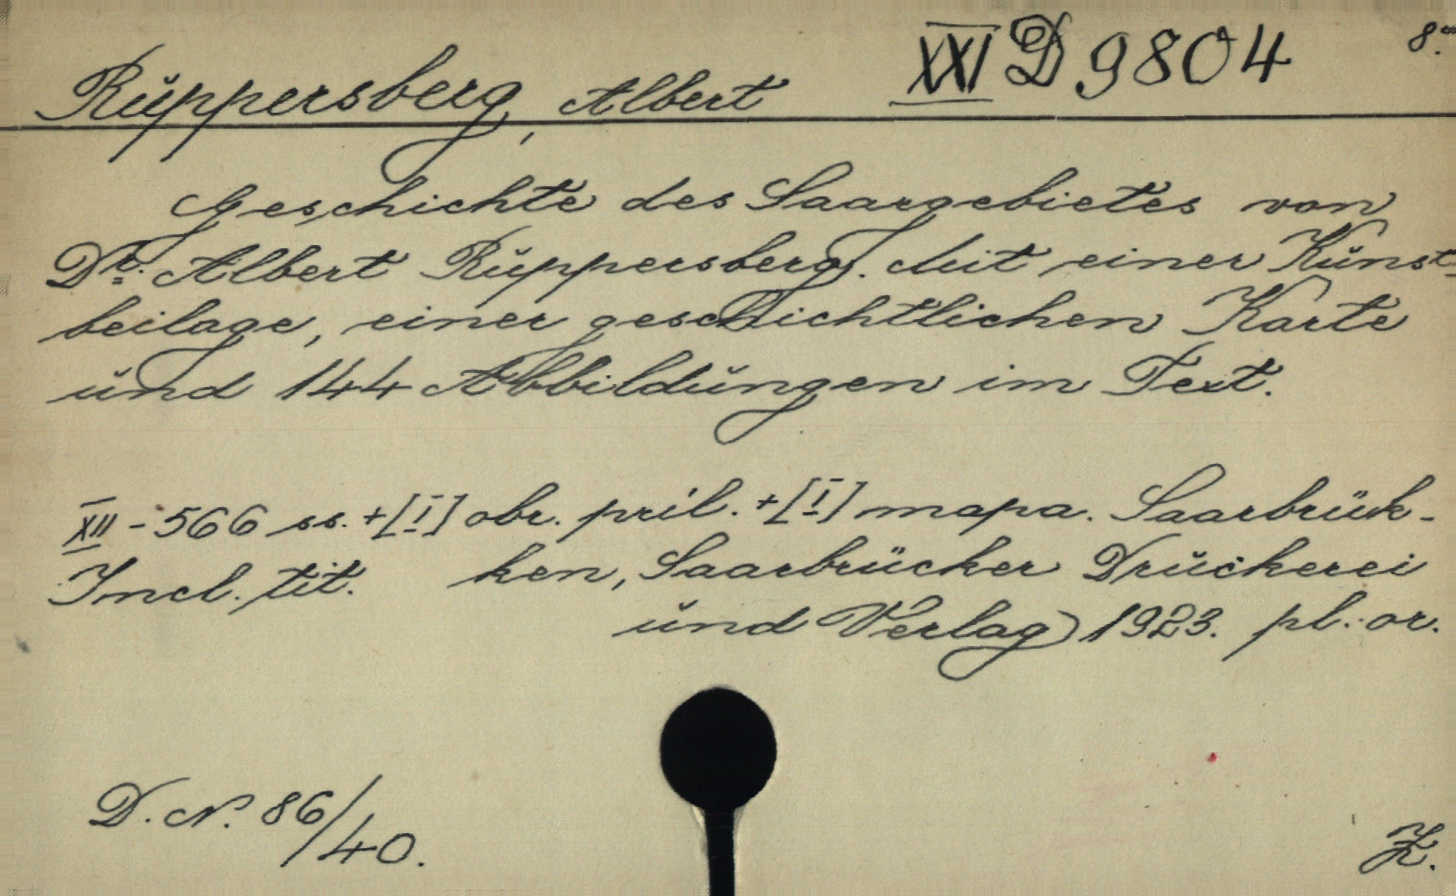 Ruppersberg, Albert XXI D 9804 8.°
Geschichte des Saargebietes von
Dr. Albert Ruppersberg. Mit einer Kunst-
beilage, einer geschichtlichen Karte
und 144 Abbildungen im Text.
XII - 566 ss. + [I] obr. pril. + [I] mapa. Saarbrück-
Incl. tit. ken, Saarbrücker Druckerei
und Verlag, 1923. pl. or.
D. N. 86/40.
Ž.